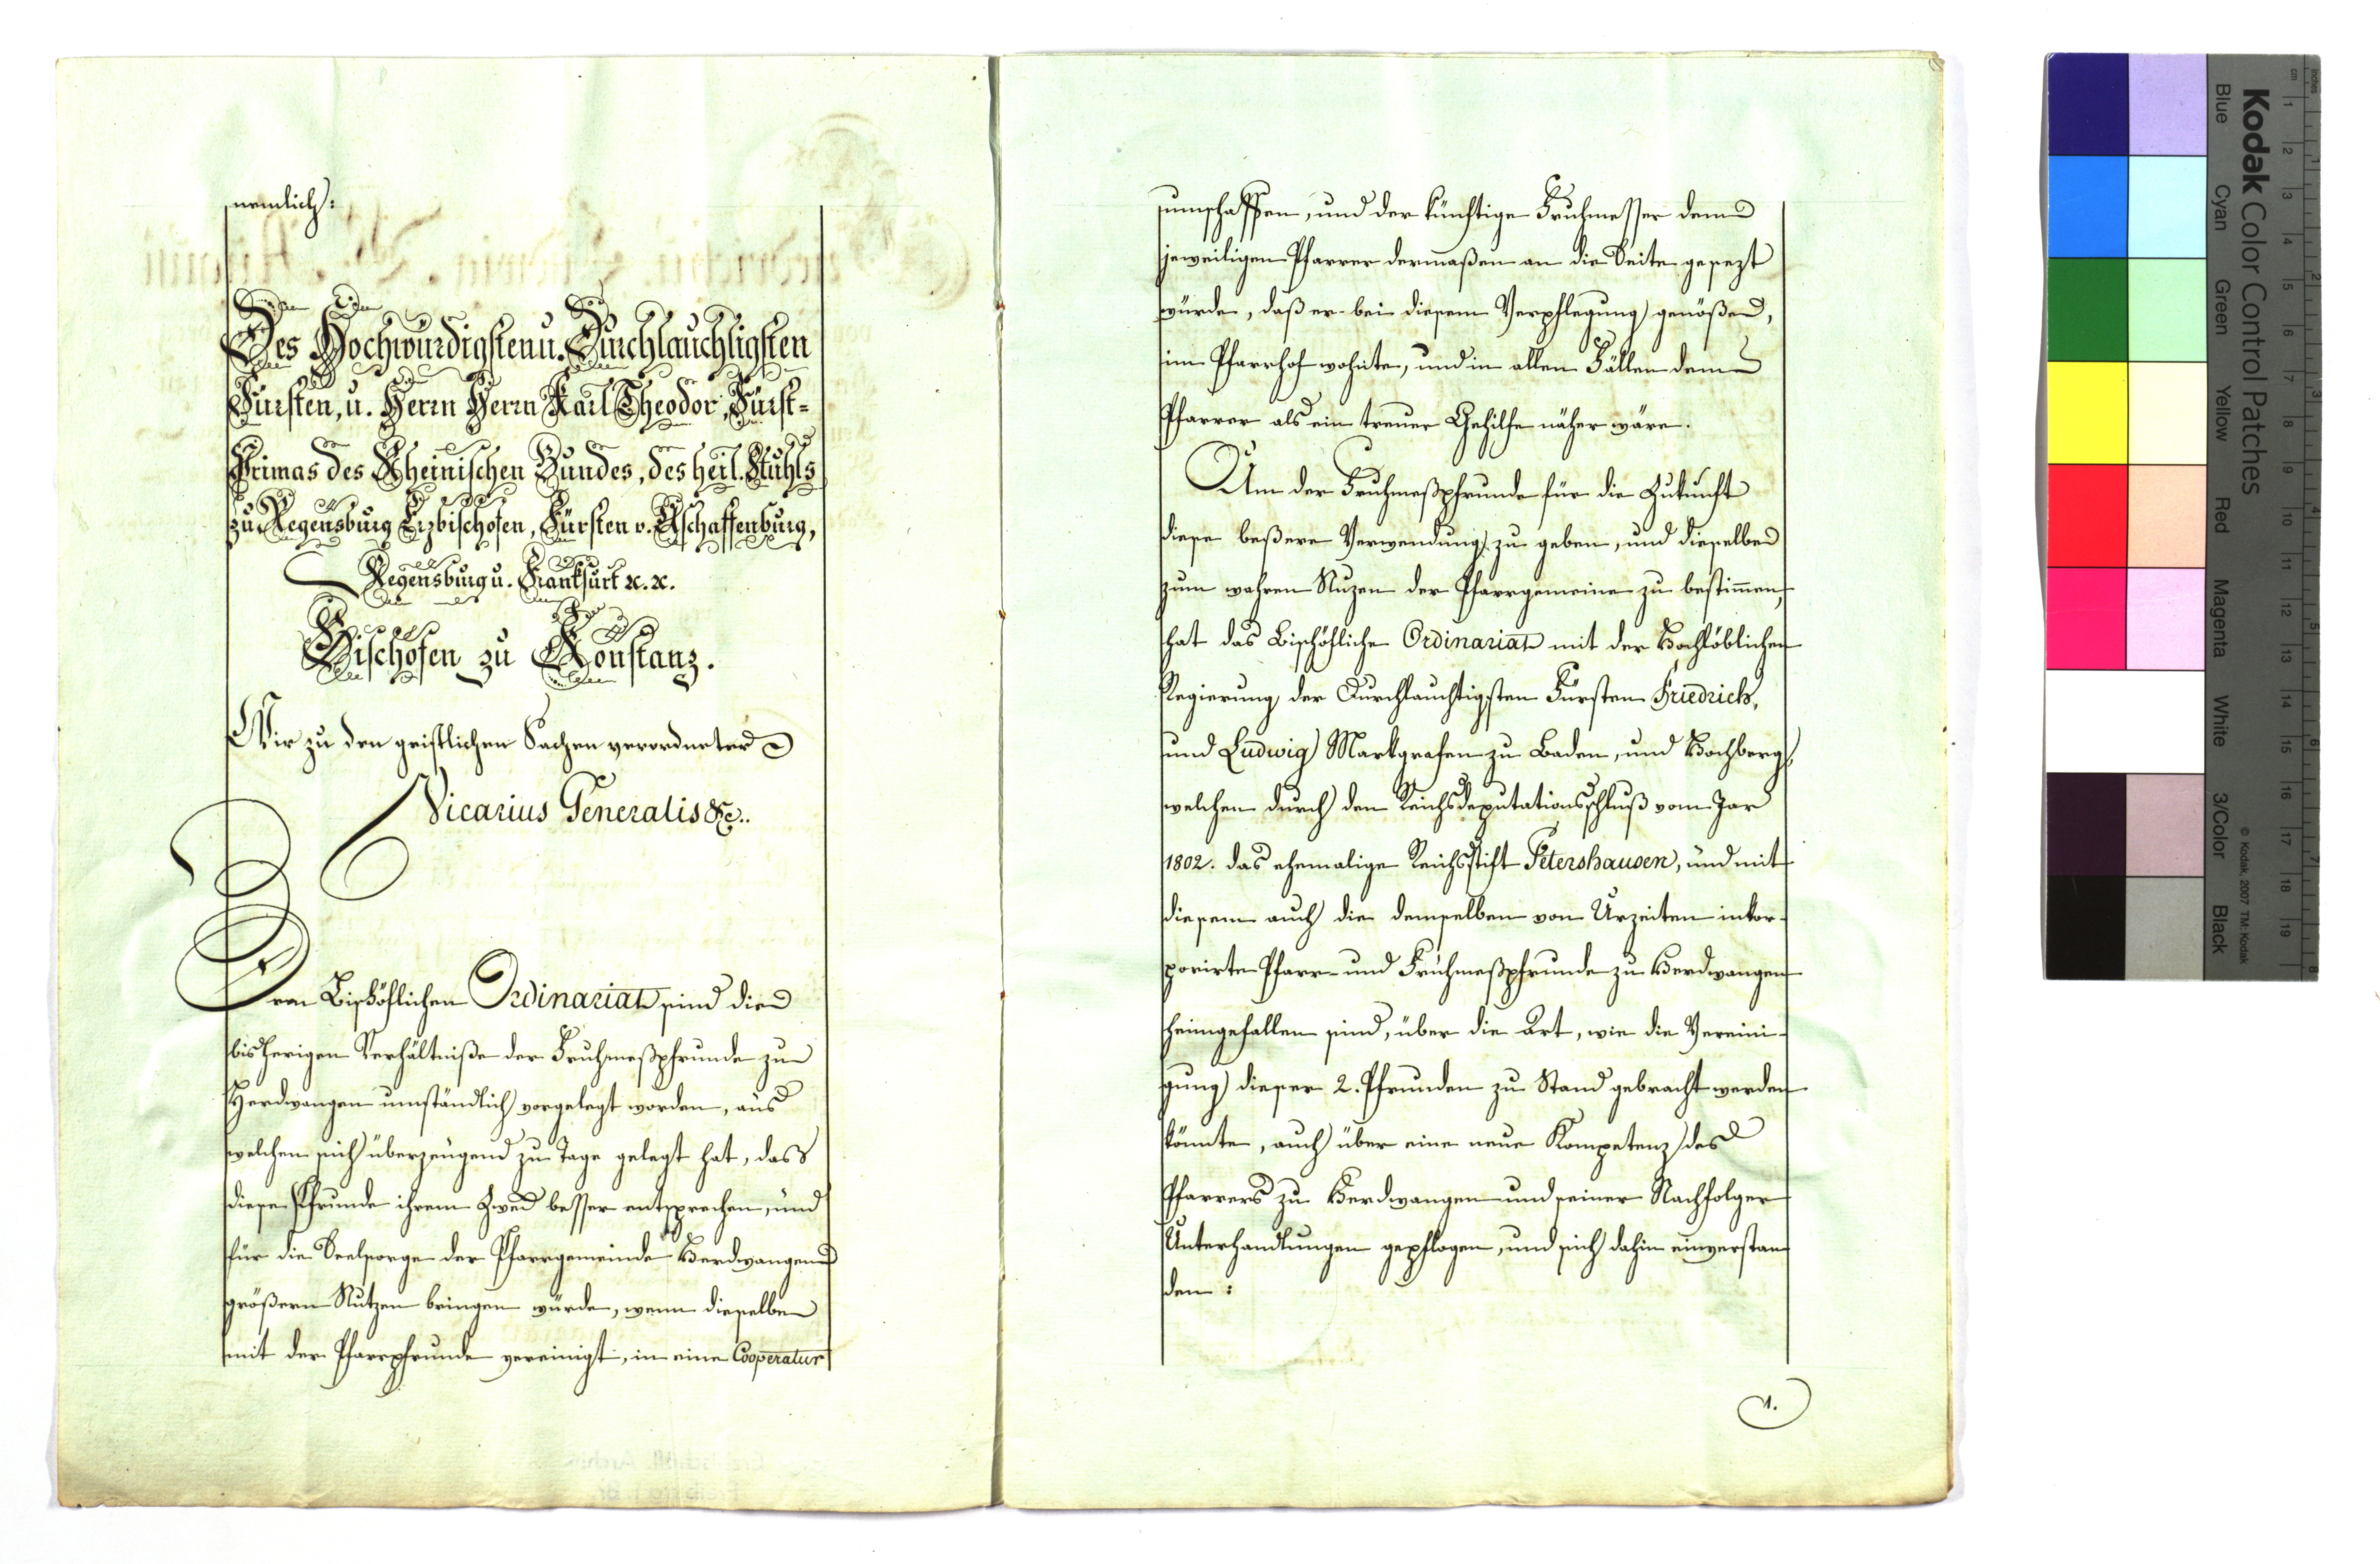 nemlich:
Des Hochwürdigsten u. Durchlauchtigsten
Fürsten, u. Herrn Herrn Karl Theodor, Fürst-
Primas des Rheinischen Bundes, des heil. Stuhls
zu Regensburg Erzbischofen, Fürsten v. Aschaffenburg,
Regensburg u. Frankfurt &c. &c.
Bischofen zu Konstanz.
Wir zu den geistlichen Sachen verordneter
Vicarius Generalis &c..
Dem Bischöflichen Ordinariat sind die
bisherigen Verhältniße der Fruhmeßpfrunde zu
Herdwangen umständlich vorgelegt worden, aus
welchen sich überzeugend zu Tage gelegt hat, dass
diese Pfrunde ihrem Zwek besser entsprechen, und
für die Seelsorge der Pfarrgemeinde Herdwangen
größern Nutzen bringen würde, wenn dieselbe
mit der Pfarrpfrunde vereinigt, in eine Cooperatur
umschaffen, und der künftige Fruhmesser dem
jeweiligen Pfarrer dermaßen an die Seite gesezt
würde, daß er bei diesem Verpflegung genöße,
im Pfarrhof wohnte, und in allen Fällen dem
Pfarrer als ein treuer Gehilfe näher wäre.
Um der Fruhmeßpfrunde für die Zukunft
diese beßere Verwendung zu geben, und dieselbe
zum wahren Nuzen der Pfarrgemeine zu bestim̄en,
hat das Bischöfliche Ordinariat mit der Hochlöblichen
Regierung der Durchlauchtigsten Fürsten Friedrich,
und Ludwig Markgrafen zu Baden, und Hochberg,
welchen durch den Reichsdeputationsschluß vom Jar
1802. das ehemalige Reichsstift Petershausen, und mit
diesem auch die demselben von Urzeiten inkor-
porirte Pfarr- und Frühmeßpfrunde zu Herdwangen
heimgefallen sind, über die Art, wie die Vereini-
gung dieser 2. Pfrunden zu Stand gebracht werden
könnte, auch über eine neue Kompetenz des
Pfarrers zu Herdwangen und seiner Nachfolger
Unterhandlungen gepflogen, und sich dahin einverstan
den:
1.
Kodak Color Control Patches
Blue Cyan Green Yellow Red Magenta White 3/Color Black
© Kodak, 2007 TM: Kodak
inches
cm
1 2 3 4 5 6 7 8 9 10 11 12 13 14 15 16 17 18 19
1 2 3 4 5 6 7 8